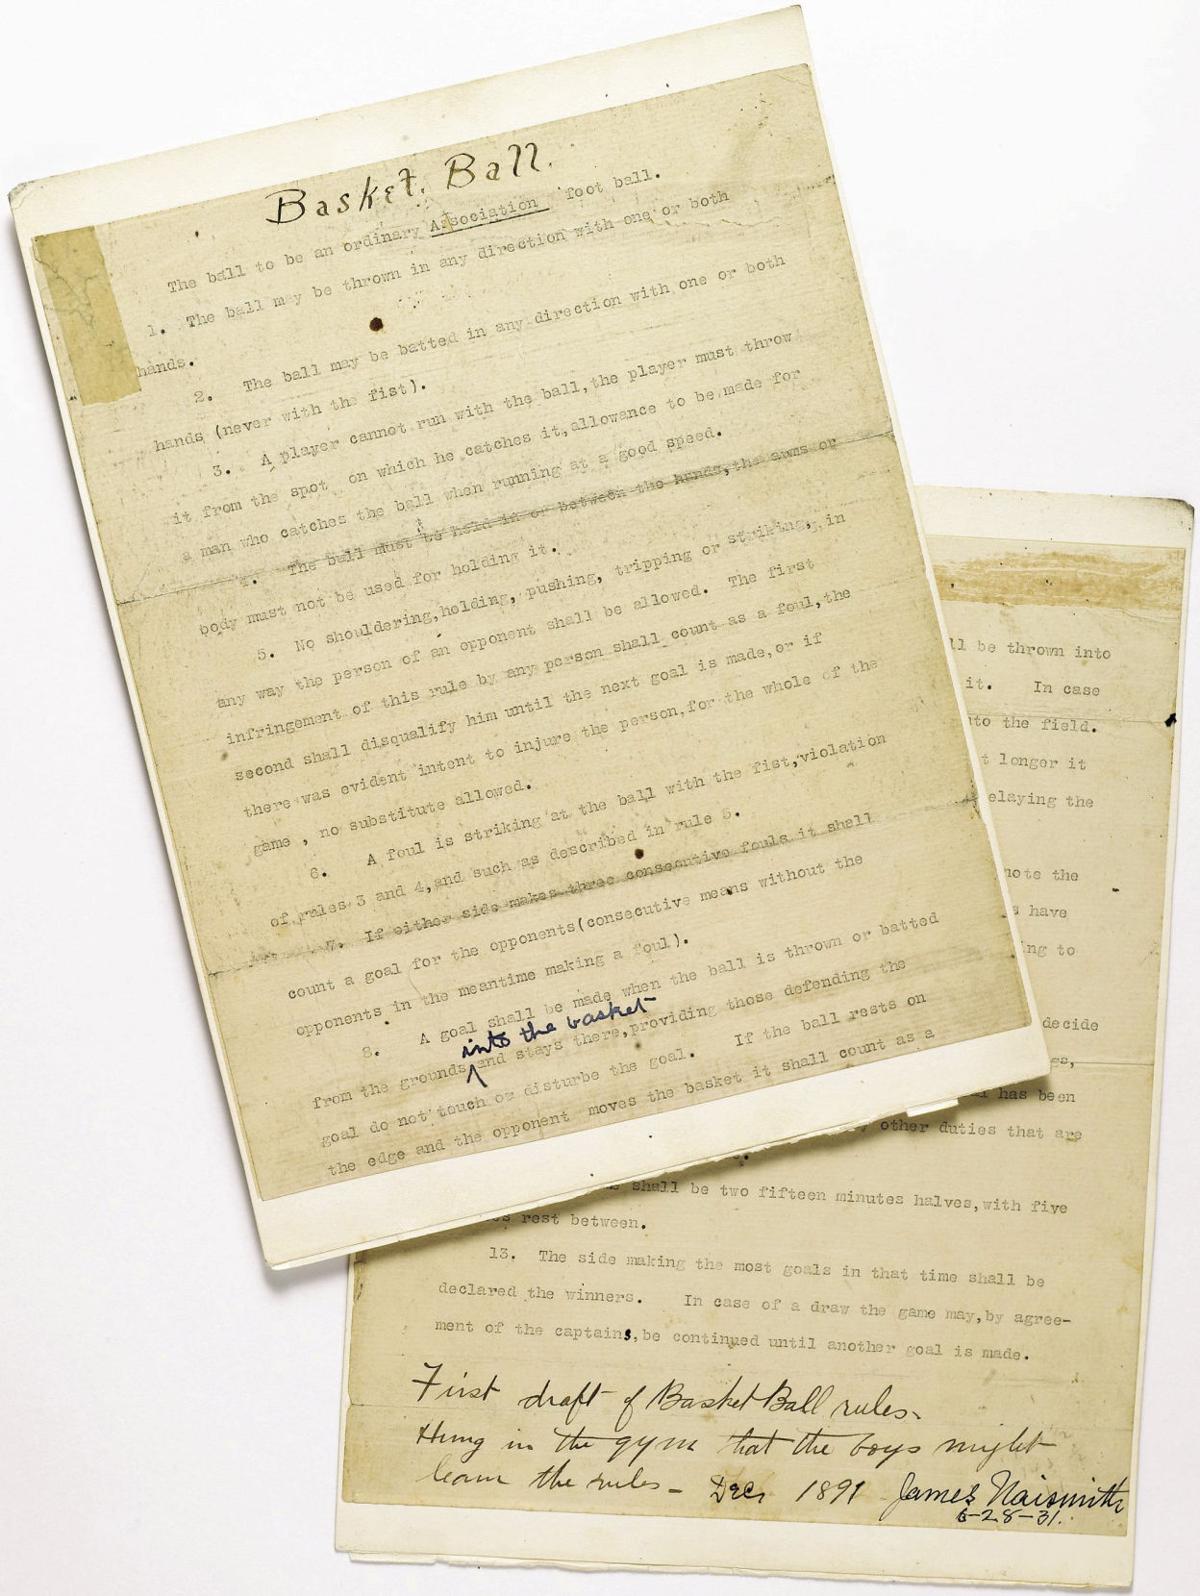 Basket Ball.
The ball to be an ordinary Association foot ball.
1. The ball may be thrown in any direction with one or both
hands.
2. The ball may be batted in any direction with one or both
hands (never with the fist).
3. A player cannot run with the ball, the player must throw
it from the spot on which he catches it, allowance to be made for
a man who catches the ball when running at a good speed.
4. The ball must be held in or between the hands, the arms or
body must not be used for holding it.
5. No shouldering, holding, pushing, tripping or striking, in
any way the person of an opponent shall be allowed. The first
infringement of this rule by any person shall count as a foul, the
second shall disqualify him until the next goal is made, or if
there was evident intent to injure the person, for the whole of the
game, no substitute allowed.
6. A foul is striking at the ball with the fist, violation
of rules 3 and 4, and such as described in rule 5.
7. If either side makes three consecutive fouls it shall
count a goal for the opponents (consecutive means without the
opponents in the meantime making a foul).
8. A goal shall be made when the ball is thrown or batted
into the basket
from the grounds and stays there, providing those defending the
goal do not touch or disturbe the goal. If the ball rests on
the edge and the opponent moves the basket it shall count as a
be thrown into
it. In case
the field.
longer it
elaying the
note the
have
ing to
decide
has been
other duties that are
shall be two fifteen minutes halves, with five
rest between.
13. The side making the most goals in that time shall be
declared the winners. In case of a draw the game may, by agree-
ment of the captains, be continued until another goal is made.
First draft of Basket Ball rules.
Hung in the gym that the boys might
learn the rules - Dec. 1891 James Naismith
6-28-31.